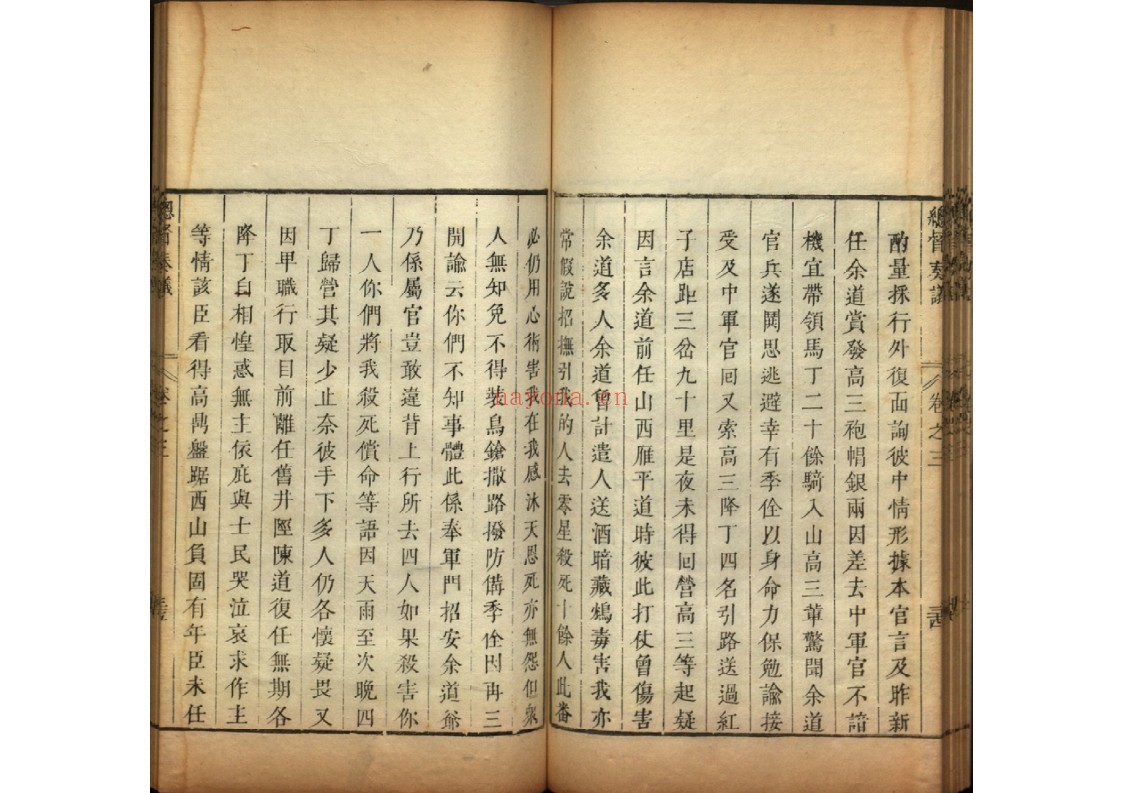 總督奏議
卷之三
酌量採行外復面詢彼中情形據本官言及昨新
任余道賞發高三袍帽銀兩因差去中軍官不諳
機宜帶領馬丁二十餘騎入山高三輩驚聞余道
官兵遂鬨思逃避幸有季佺以身命力保勉諭接
受及中軍官回又索高三降丁四名引路送過紅
子店距三岔九十里是夜未得回營高三等起疑
因言余道前任山西雁平道時彼此打仗曾傷害
余道多人余道曾計遣人送酒暗藏鴆毒害我亦
常假說招撫引我的人去零星殺死十餘人此番
必仍用心術害我在我感沐天恩死亦無怨但衆
人無知免不得裝鳥鎗撒路撥防備季佺因再三
開諭云你們不知事體此係奉軍門招安余道爺
乃係屬官豈敢違背上行所去四人如果殺害你
一人你們將我殺死償命等語因天雨至次晚四
丁歸營其疑少止奈彼手下多人仍各懷疑畏又
因甲職行取目前離任舊井陘陳道復任無期各
降丁自相惶惑無主依庇與士民哭泣哀求作主
等情該臣看得高鼎盤踞西山負固有年臣未任
總督奏議
卷之三
aayona.cn